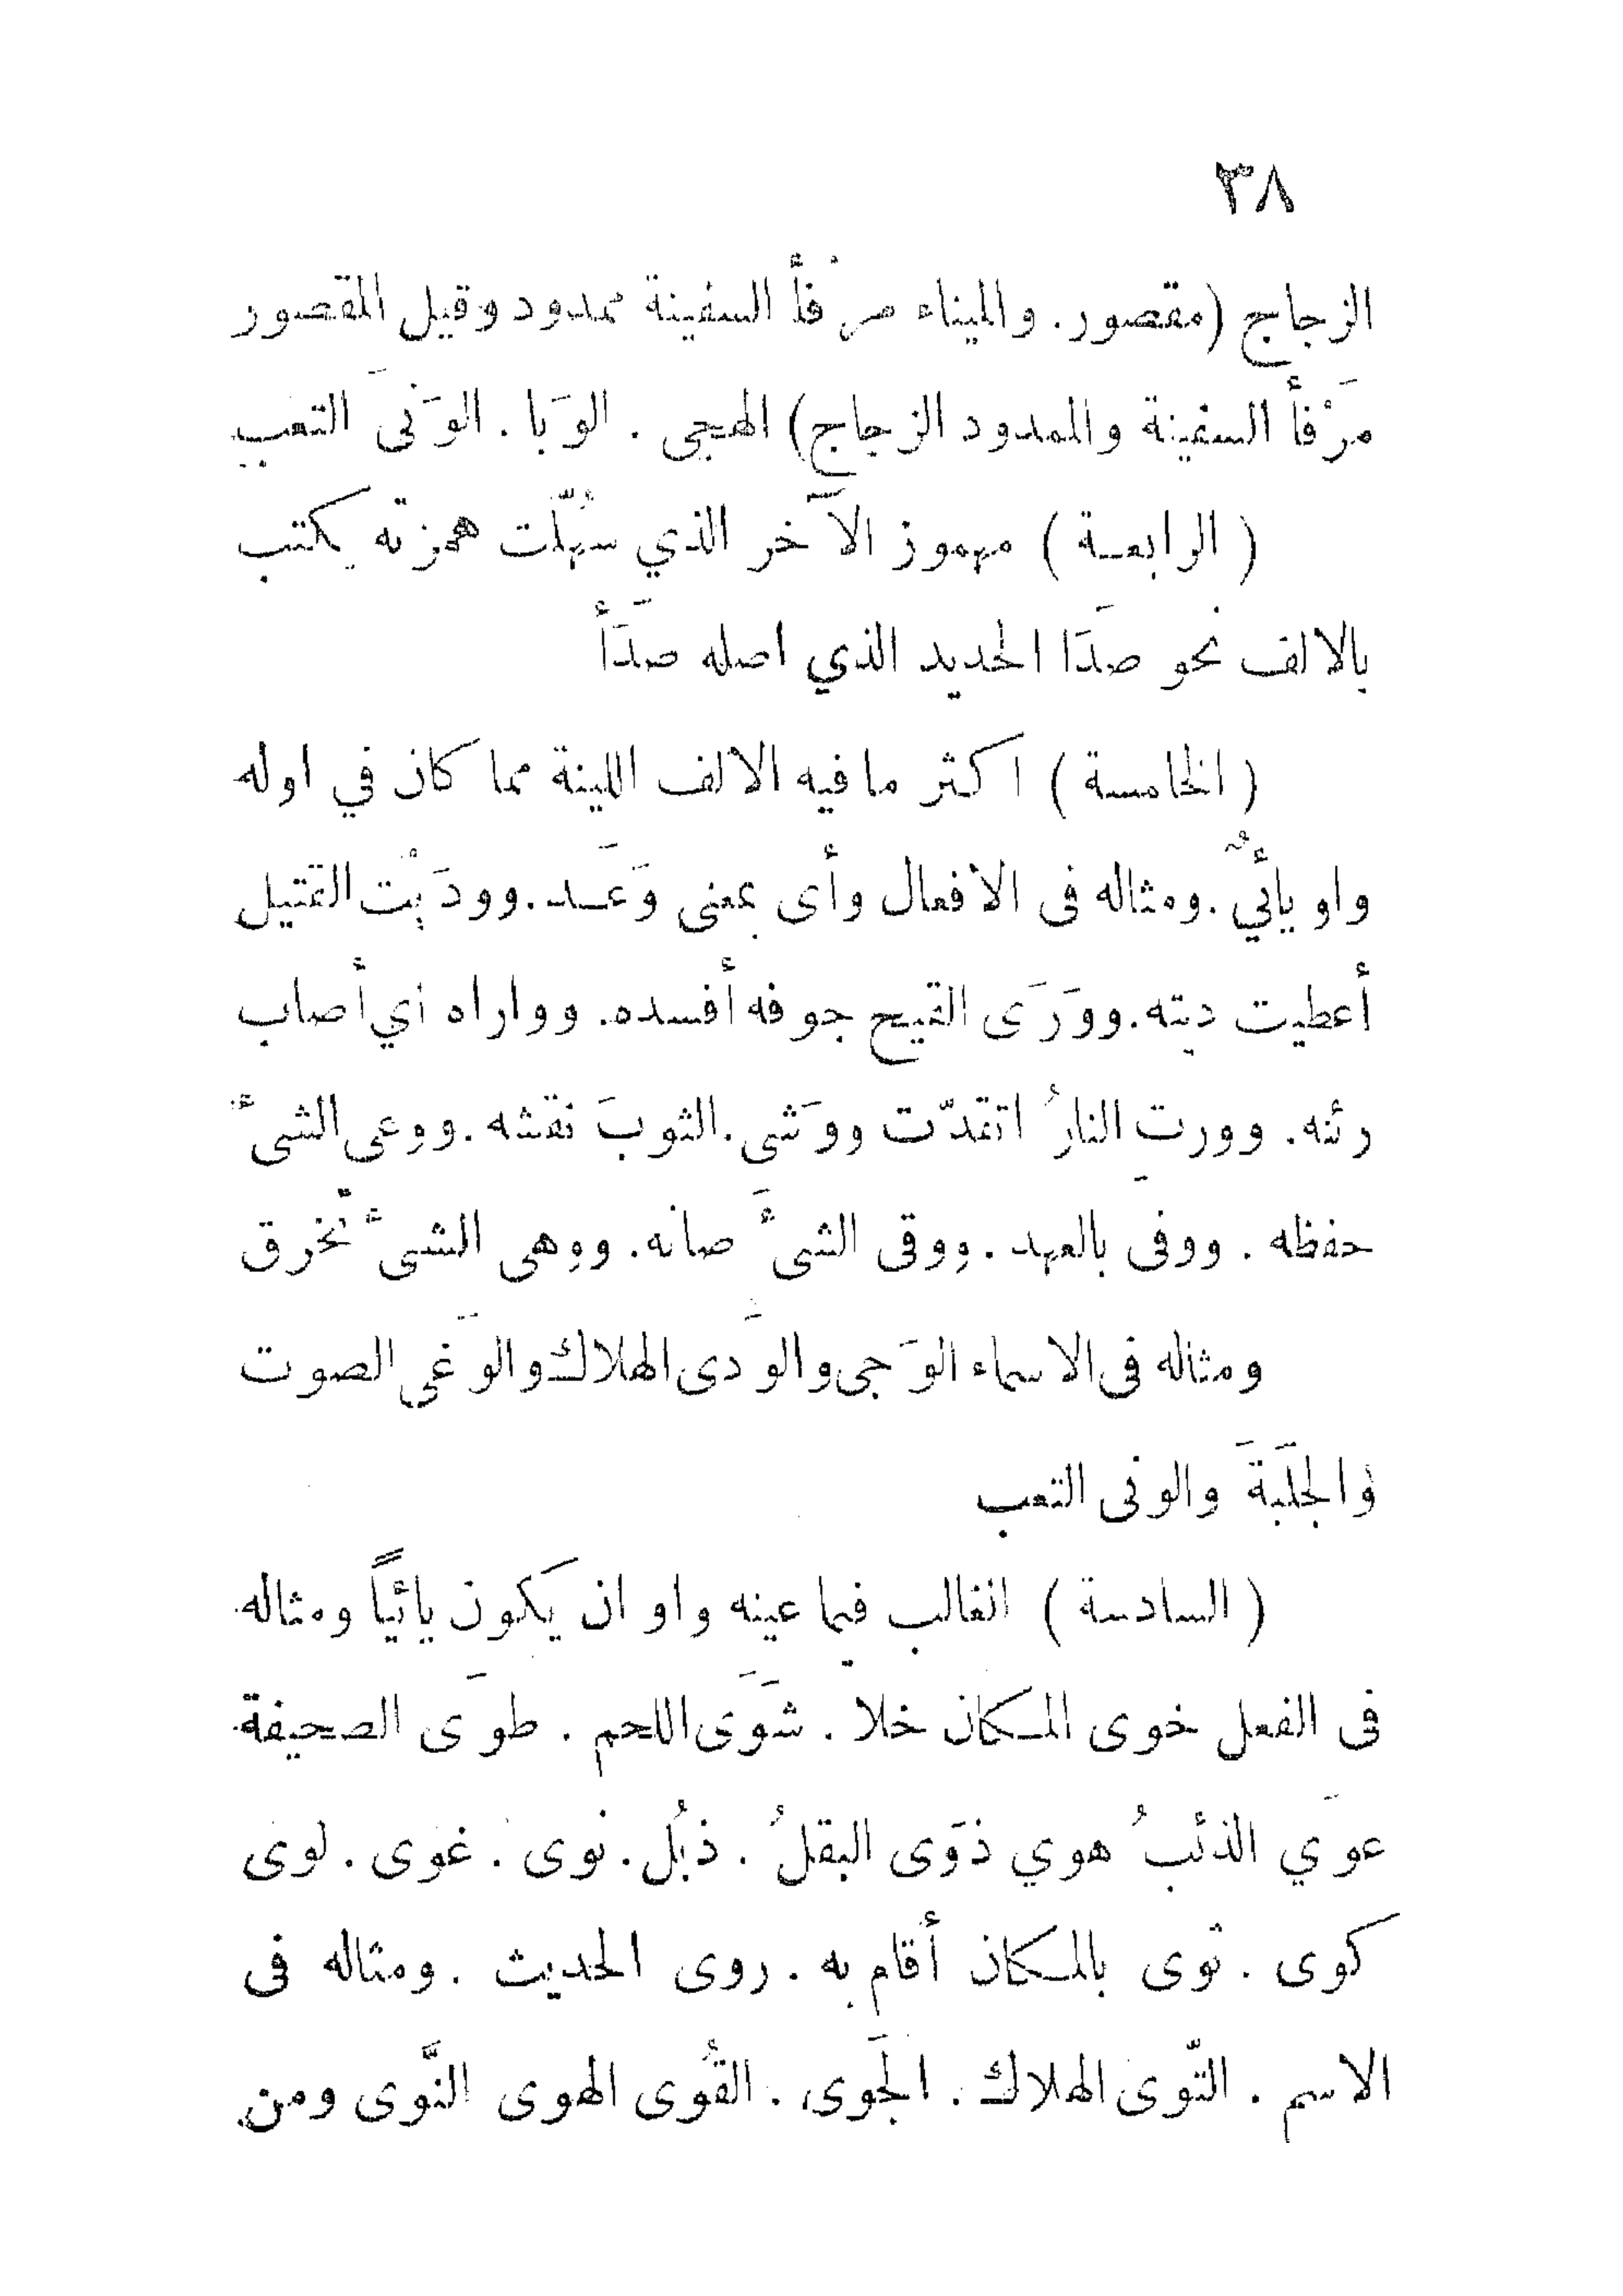 ٣٨
الزجاج (مقصور. والميناء مرْفأ السفينة ممدود وقيل المقصور
مَرْفأ السفينة والممدود الزجاج) الهجى . الوَبا . الوَنَى التعب
( الرابعة ) مهموز الآخر الذي سُهّلَت همزته يكتب
بالالف نحو صدَا الحديد الذي اصله صدَأ
( الخامسة ) اكثر ما فيه الالف اللينة مما كان في اوله
واو يائيٌّ .ومثاله فى الافعال وأى بمعنى وَعَد.وودَيْت القتيل
أعطيت ديته.ووَرَى القيح جوفه أفسده. وواراه اي أصاب
رئته. وورت النارُ اتقدّت ووَشى.الثوبَ نقشه .ووعى الشىءَ
حفظه . ووفى بالعهد .ووقى الشىءَ صانه. ووهى الشىءُ تخرق
ومثاله فى الاسماء الوَجى والوَدى الهلاك والوَغى الصوت
والجلَبَةَ والونى التعب
( السادسة ) الغالب فيما عينه واو ان يكون يائيّاً ومثاله
فى الفعل خوى المكان خلا . شَوَى اللحم . طوَى الصحيفة
عوَي الذئبُ هوي ذوَى البقلُ . ذبُل. نوى . غوى . لوى
كوى . ثوى بالمكان أقام به . روى الحديث .ومثاله فى
الاسم . التّوى الهلاك . الجَوى . القُوى الهوى النَّوى ومن